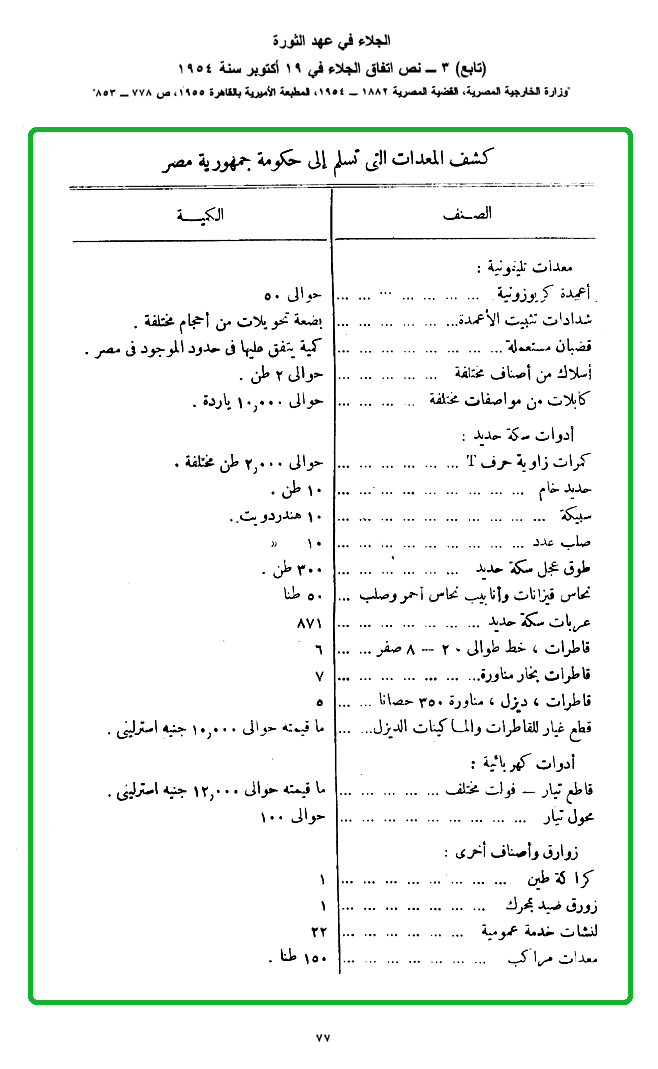 الجلاء في عهد الثورة
(تابع) ٣ ــ نص اتفاق الجلاء في ١٩ أكتوبر سنة ١٩٥٤
"وزارة الخارجية المصرية، القضية المصرية ١٨٨٢ ــ ١٩٥٤، المطبعة الأميرية بالقاهرة ١٩٥٥، ص ٧٧٨ ــ ٨٥٣"
كشف المعدات التى تسلم إلى حكومة جمهورية مصر
الصنف الكمية
معدات تليفونية :
أعمدة كريوزوتية ... ... ... ... ... ... حوالى ٥٠
شدادات تثبيت الأعمدة... ... ... ... ... بضعة تحويلات من أحجام مختلفة .
قضبان مستعملة ... ... ... ... ... ... كمية يتفق عليها فى حدود الموجود فى مصر .
أسلاك من أصناف مختلفة ... ... ... ... حوالى ٢ طن .
كابلات من مواصفات مختلفة ... ... ... ... حوالى ١٠,٠٠٠ ياردة .
أدوات سكة حديد :
كمرات زاوية حرف T ... ... ... ... ... حوالى ٢,٠٠٠ طن مختلفة .
حديد خام ... ... ... ... ... ... ... ... ١٠ طن .
سبيكة ... ... ... ... ... ... ... ... ١٠ هندردويت .
صلب عدد ... ... ... ... ... ... ... ... ١٠ »
طوق عجل سكة حديد ... ... ... ... ... ٣٠٠ طن .
نحاس قيزانات وأنابيب نحاس أحمر وصلب ... ٥٠ طنا
عربات سكة حديد ... ... ... ... ... ... ٨٧١
قاطرات ، خط طوالى ٢٠ – ٨ صفر ... ... ٦
قاطرات بخار مناورة... ... ... ... ... ٧
قاطرات ، ديزل ، مناورة ٣٥٠ حصانا ... ... ... ٥
قطع غيار للقاطرات والماكينات الديزل... ... ما قيمته حوالى ١٠,٠٠٠ جنيه استرلينى .
أدوات كهربائية :
قاطع تيار – فولت مختلف ... ... ... ... ... ما قيمته حوالى ١٢,٠٠٠ جنيه استرلينى .
محول تيار ... ... ... ... ... ... ... ... حوالى ١٠٠
زوارق وأصناف أخرى :
كراكة طين ... ... ... ... ... ... ... ١
زورق صيد بمحرك ... ... ... ... ... ... ١
لنشات خدمة عمومية ... ... ... ... ... ... ٢٢
معدات مراكب ... ... ... ... ... ... ١٥٠ طنا .
٧٧